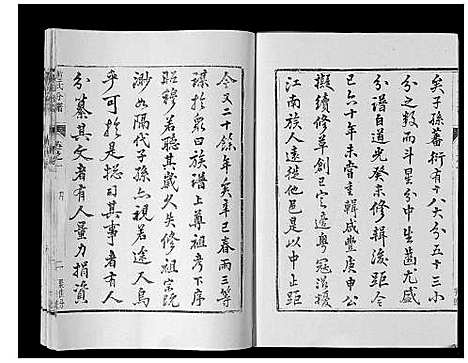 矣子孫蕃衍有十八大分五十三小
分之殷而斗星分中生齒尤盛
分譜自道光癸未修輯後距今
已六十年未嘗主輯咸豐庚申公
擬續修草創已定遭粵寇滋擾
江南族人遠徙他方是以中止距
今又二十餘年矣辛巳春雨三等
謀於眾曰族譜上尊祖考下序
昭穆若聽其歲久失修祖宗既
渺如隔代子孫亦視若途人烏
乎可於是司其事者有人
分纂其文者有人量力捐資